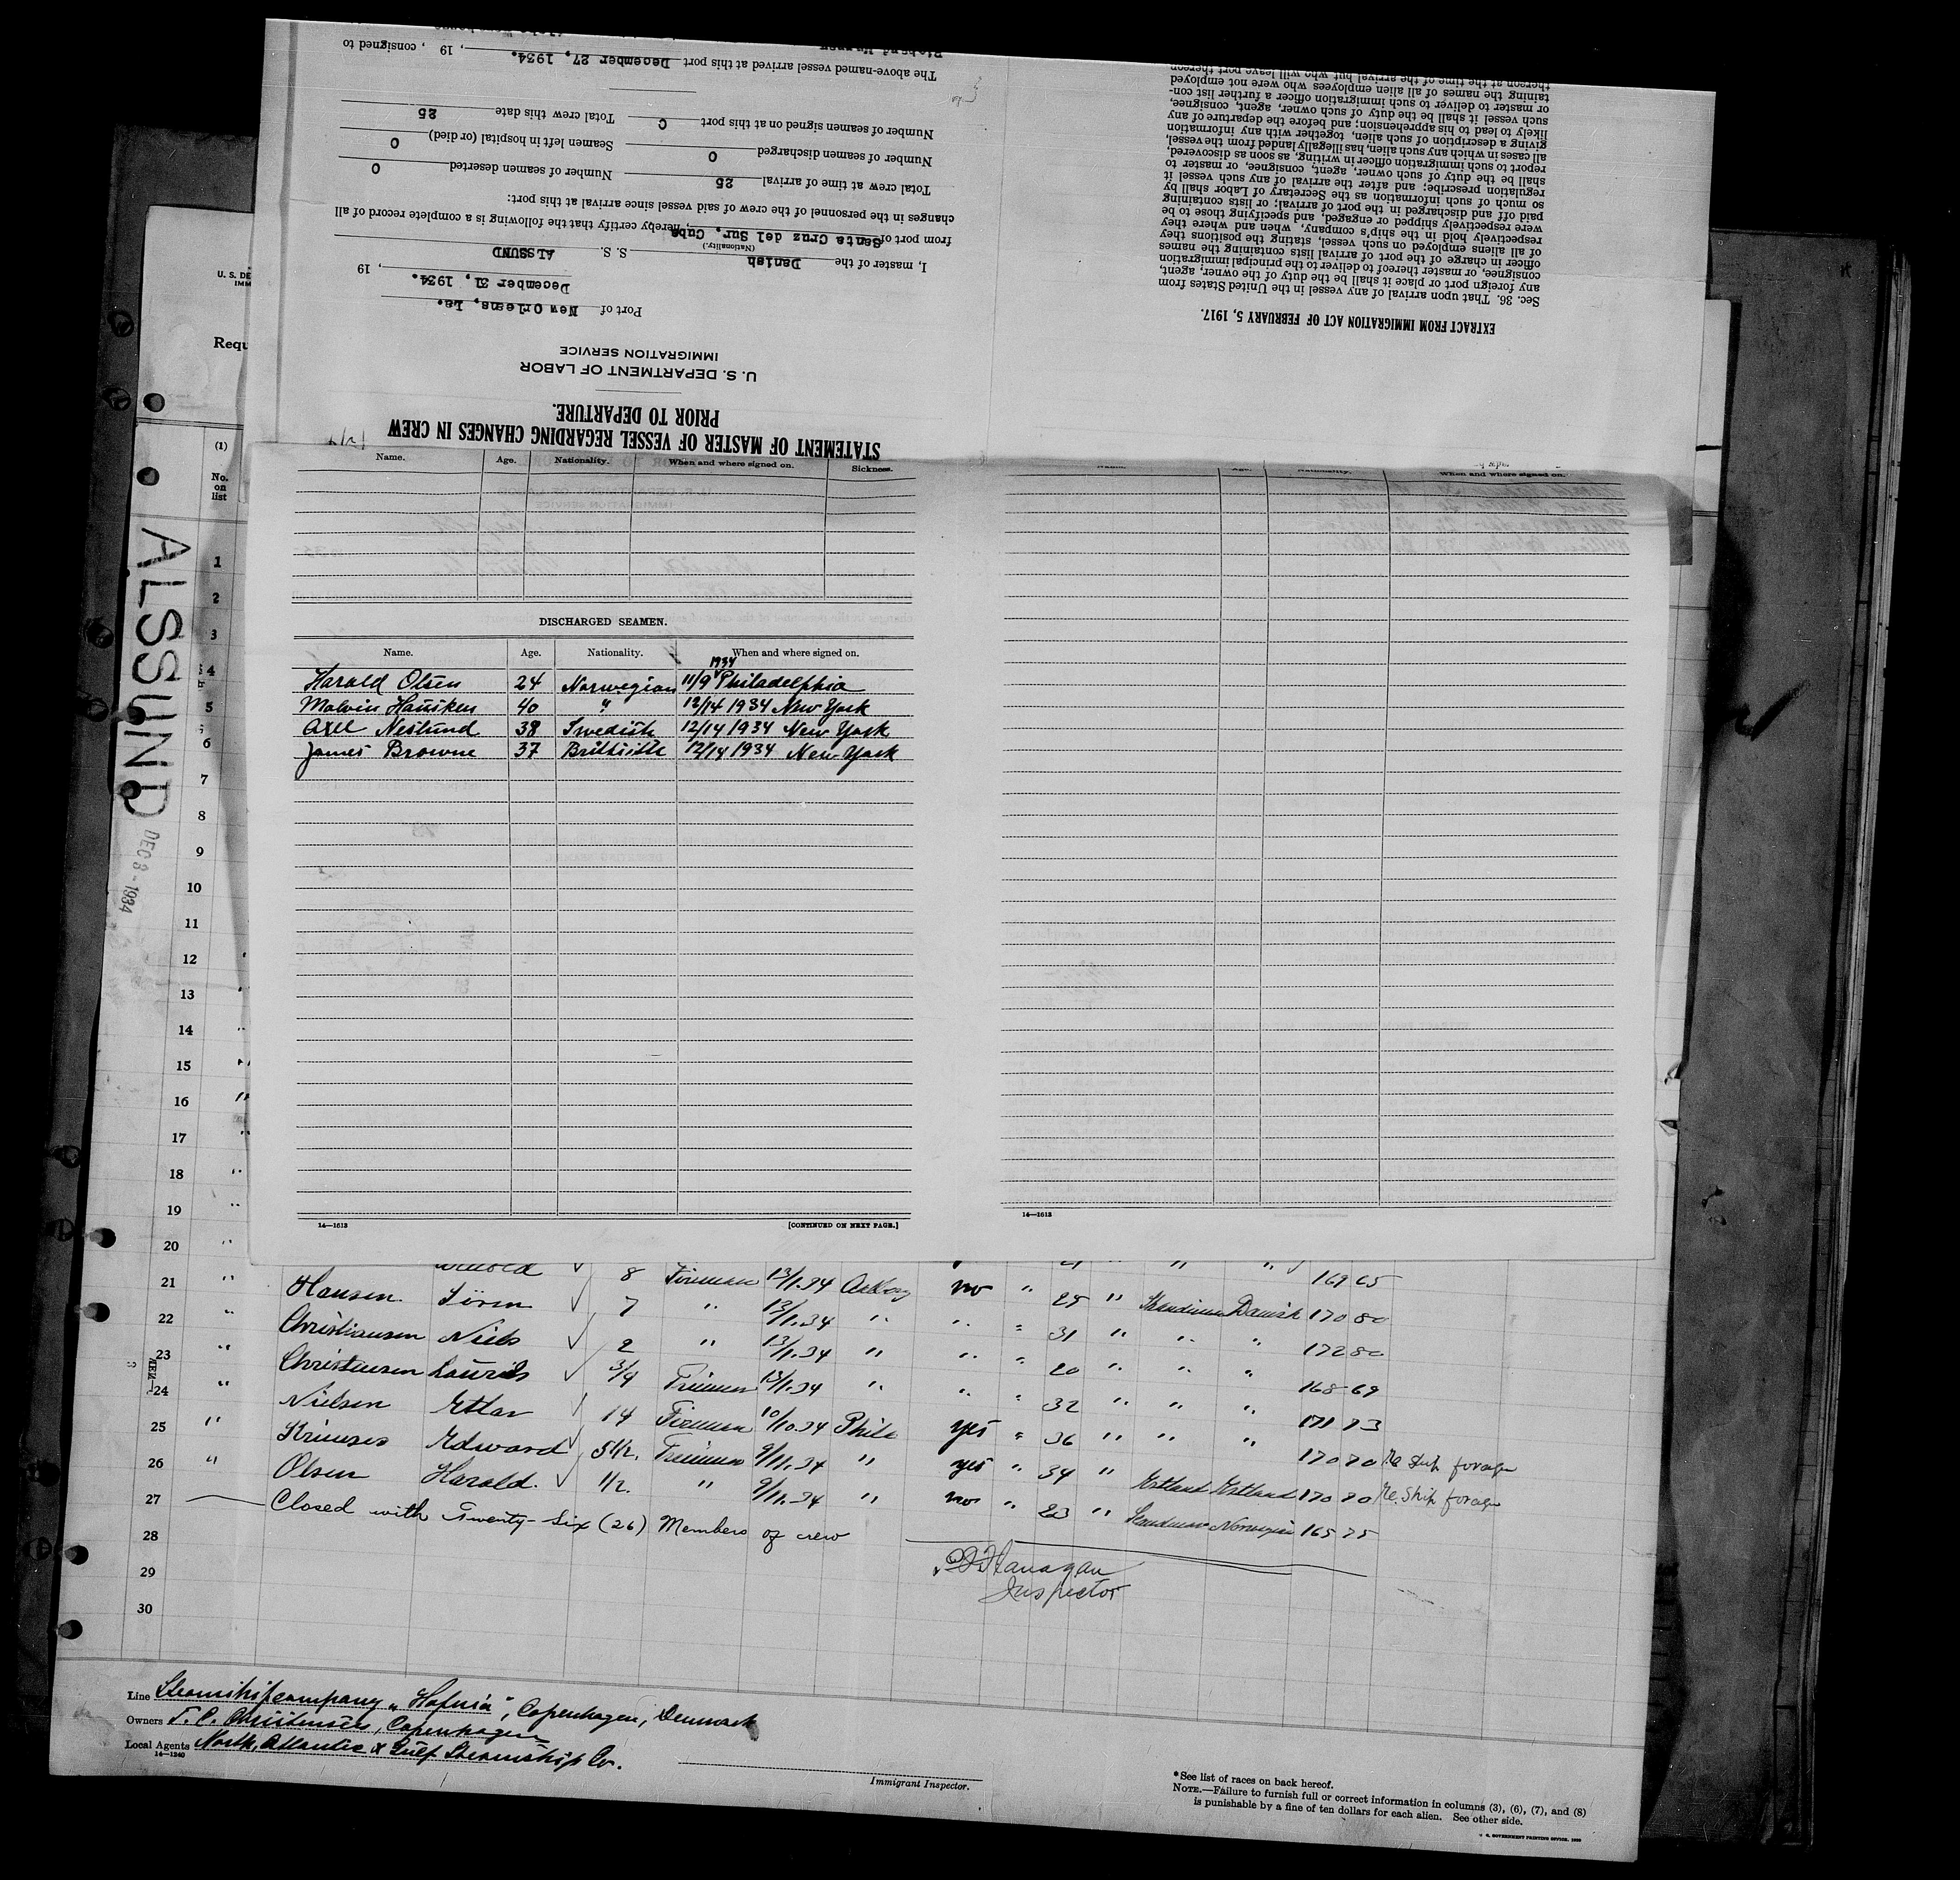 STATEMENT OF MASTER OF VESSEL REGARDING CHANGES IN CREW
PRIOR TO DEPARTURE.
U. S. DEPARTMENT OF LABOR
IMMIGRATION SERVICE
Port of New Orleans, La.
December 31, 1934. , 19
I, master of the Danish S. S. ALSSUND
(Nationality.)
from port of Santa Cruz del Sur, Cuba, hereby certify that the following is a complete record of all
changes in the personnel of the crew of said vessel since arrival at this port:
Total crew at time of arrival 25 Number of seamen deserted 0
Number of seamen discharged 0 Seamen left in hospital (or died) 0
Number of seamen signed on at this port Total crew this date 25
The above-named vessel arrived at this port December 27, 1934. , 19 , consigned to
EXTRACT FROM IMMIGRATION ACT OF FEBRUARY 5, 1917.
Sec. 36. That upon arrival of any vessel in the United States from
any foreign port or place it shall be the duty of the owner, agent,
consignee, or master thereof to deliver to the principal immigration
officer in charge of the port of arrival lists containing the names
of all aliens employed on such vessel, stating the positions they
respectively hold in the ship's company, when and where they
were respectively shipped or engaged, and specifying those to be
paid off and discharged in the port of arrival; or lists containing
so much of such information as the Secretary of Labor shall by
regulation prescribe; and after the arrival of any such vessel it
shall be the duty of such owner, agent, consignee, or master to
report to such immigration officer in writing, as soon as discovered,
all cases in which any such alien, has illegally landed from the vessel,
giving a description of such alien, together with any information
likely to lead to his apprehension; and before the departure of any
such vessel it shall be the duty of such owner, agent, consignee,
or master to deliver to such immigration officer a further list con-
taining the names of all alien employees who were not employed
thereon at the time of the arrival but who will leave port thereon
Name. Age. Nationality. When and where signed on. Sickness.
When and where signed on.
DISCHARGED SEAMEN.
Name. Age. Nationality. When and where signed on.
1934
Harold Olsen 24 Norwegian 11/9 Philadelphia
Malvin Hausken 40 " 12/14 1934 New York
Axel Neslund 38 Swedish 12/14 1934 New York
James Browne 37 Brittisth 12/14 1934 New York
14—1613 [CONTINUED ON NEXT PAGE.]
14—1613
U. S. DE
IMM
Requ
(1)
No.
on
list
ALSSUND
DEC 3 - 1934
1
2
3
4
5
6
7
8
9
10
11
12
13
14
15
16
17
18
19
20
8 Fireman 13/1.34 Aalborg no " 169 65
21 " Hansen Sören 7 " 13/1.34 " " " 25 " Skandinav Danish 170 80
22 " Christiansen Niels 2 " 13/1.34 " " " 31 " " " 172 80
23 " Christensen Laurids 3/4 Trimmer 13/1.34 " " " 20 " " " 168 69
24 " Nielsen 14 Fireman 10/10.34 Phila yes " 32 " " " 171 73
25 " Edward 5 1/2. Trimmer 9/11.34 " yes " 36 " " " 170 70 Re Ship foreign
26 " Olsen Harold. 1/2. " 9/11.34 " no " 34 " Estland Estland 170 70 Re. Ship foreign
23 " Skandinav Norwegian 165 75
27 Closed with Twenty-Six (26) Members of crew
28
29
30
Flanagan
Inspector
Line Steamshipcompany „Hafnia", Copenhagen, Denmark
Owners T. C. Christensen, Copenhagen
Local Agents North Atlantic & Gulf Steamship Co.
14—1240
Immigrant Inspector.
* See list of races on back hereof.
NOTE.—Failure to furnish full or correct information in columns (3), (6), (7), and (8)
is punishable by a fine of ten dollars for each alien. See other side.